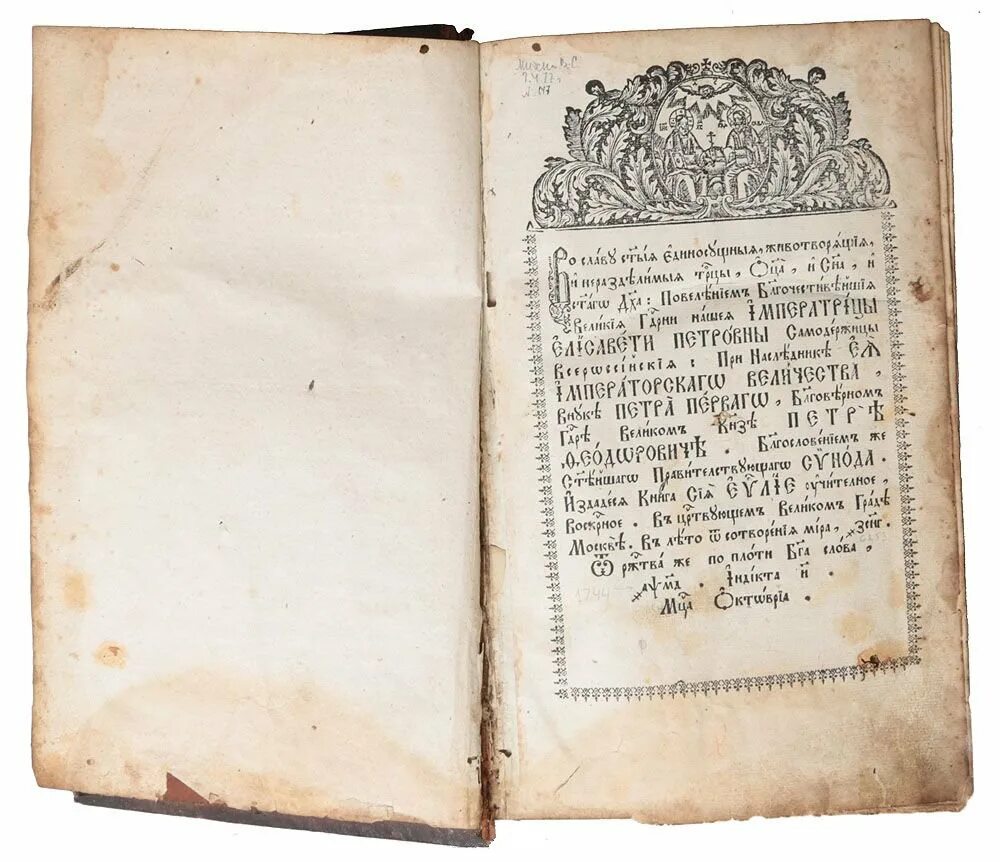 Во славу ст҃ыѧ єдиносущныѧ, животворѧщїѧ,
и нераздѣлимыѧ трⷪ҇цы, Ѻц҃а, и Сн҃а, и
ст҃агѡ Дх҃а: Повелѣнїемъ Бл҃гочестивѣйшїѧ
Великїѧ Гдⷭ҇рни нашеѧ ІМПЕРАТРИЦЫ
ЕЛІСАВЕТИ ПЕТРОВНЫ Самодержицы
Всерѡссїйскїѧ: При Наслѣдникѣ ЕѦ
ІМПЕРАТОРСКАГѠ ВЕЛИЧЕСТВА,
Внукѣ ПЕТРА ПЕРВАГѠ, Бл҃говѣрномъ
Гдⷭ҇рѣ Великомъ Кнѧ҃зѣ ПЕТРѢ
ѲЕОДѠРОВИЧѢ. Бл҃гословенїемъ же
Ст҃ѣйшагѡ Правителствующагѡ СѴНОДА.
Издадесѧ Книга Сїѧ ЕѴⷢ҇ЛІЕ оучителное,
Воскрⷭ҇ное. Въ црⷭ҇твующемъ Великомъ Градѣ
Москвѣ. Въ лѣто ѿ сотворенїѧ мїра, ҂зснг.
Ѿ ржⷭ҇тва же по плоти Бг҃а слова,
҂аѱмд. Індікта и.
1744
Мцⷭ҇а Ѻктѡврїа.